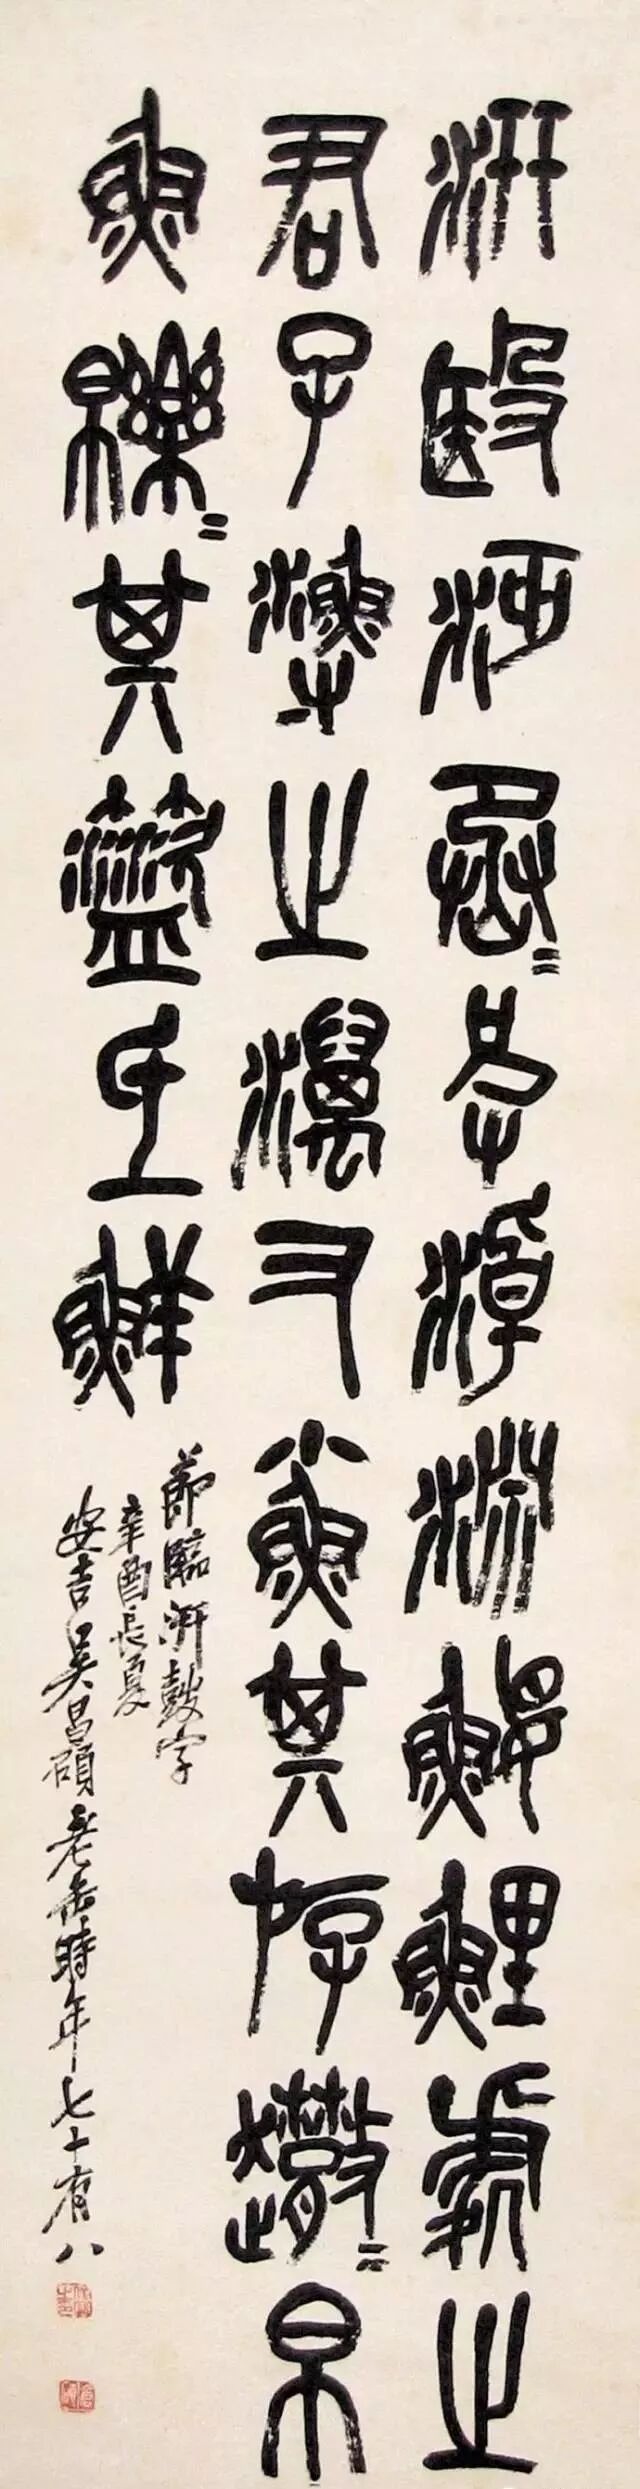 汧殹沔丞=皮淖淵鰋鯉處之
君子漁之澫又小魚其斿=帛
魚皪=其盜氐鮮
節臨汧鼓字
辛酉長夏
安吉吳昌碩老缶時年七十有八